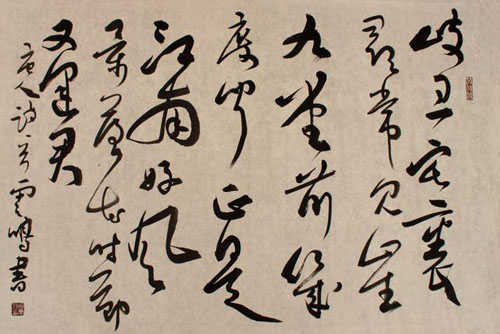 岐王宅裏
尋常見崔
九堂前幾
度聞正是
江南好風
景落花時節
又逢君
唐人詩一首雲鳴書